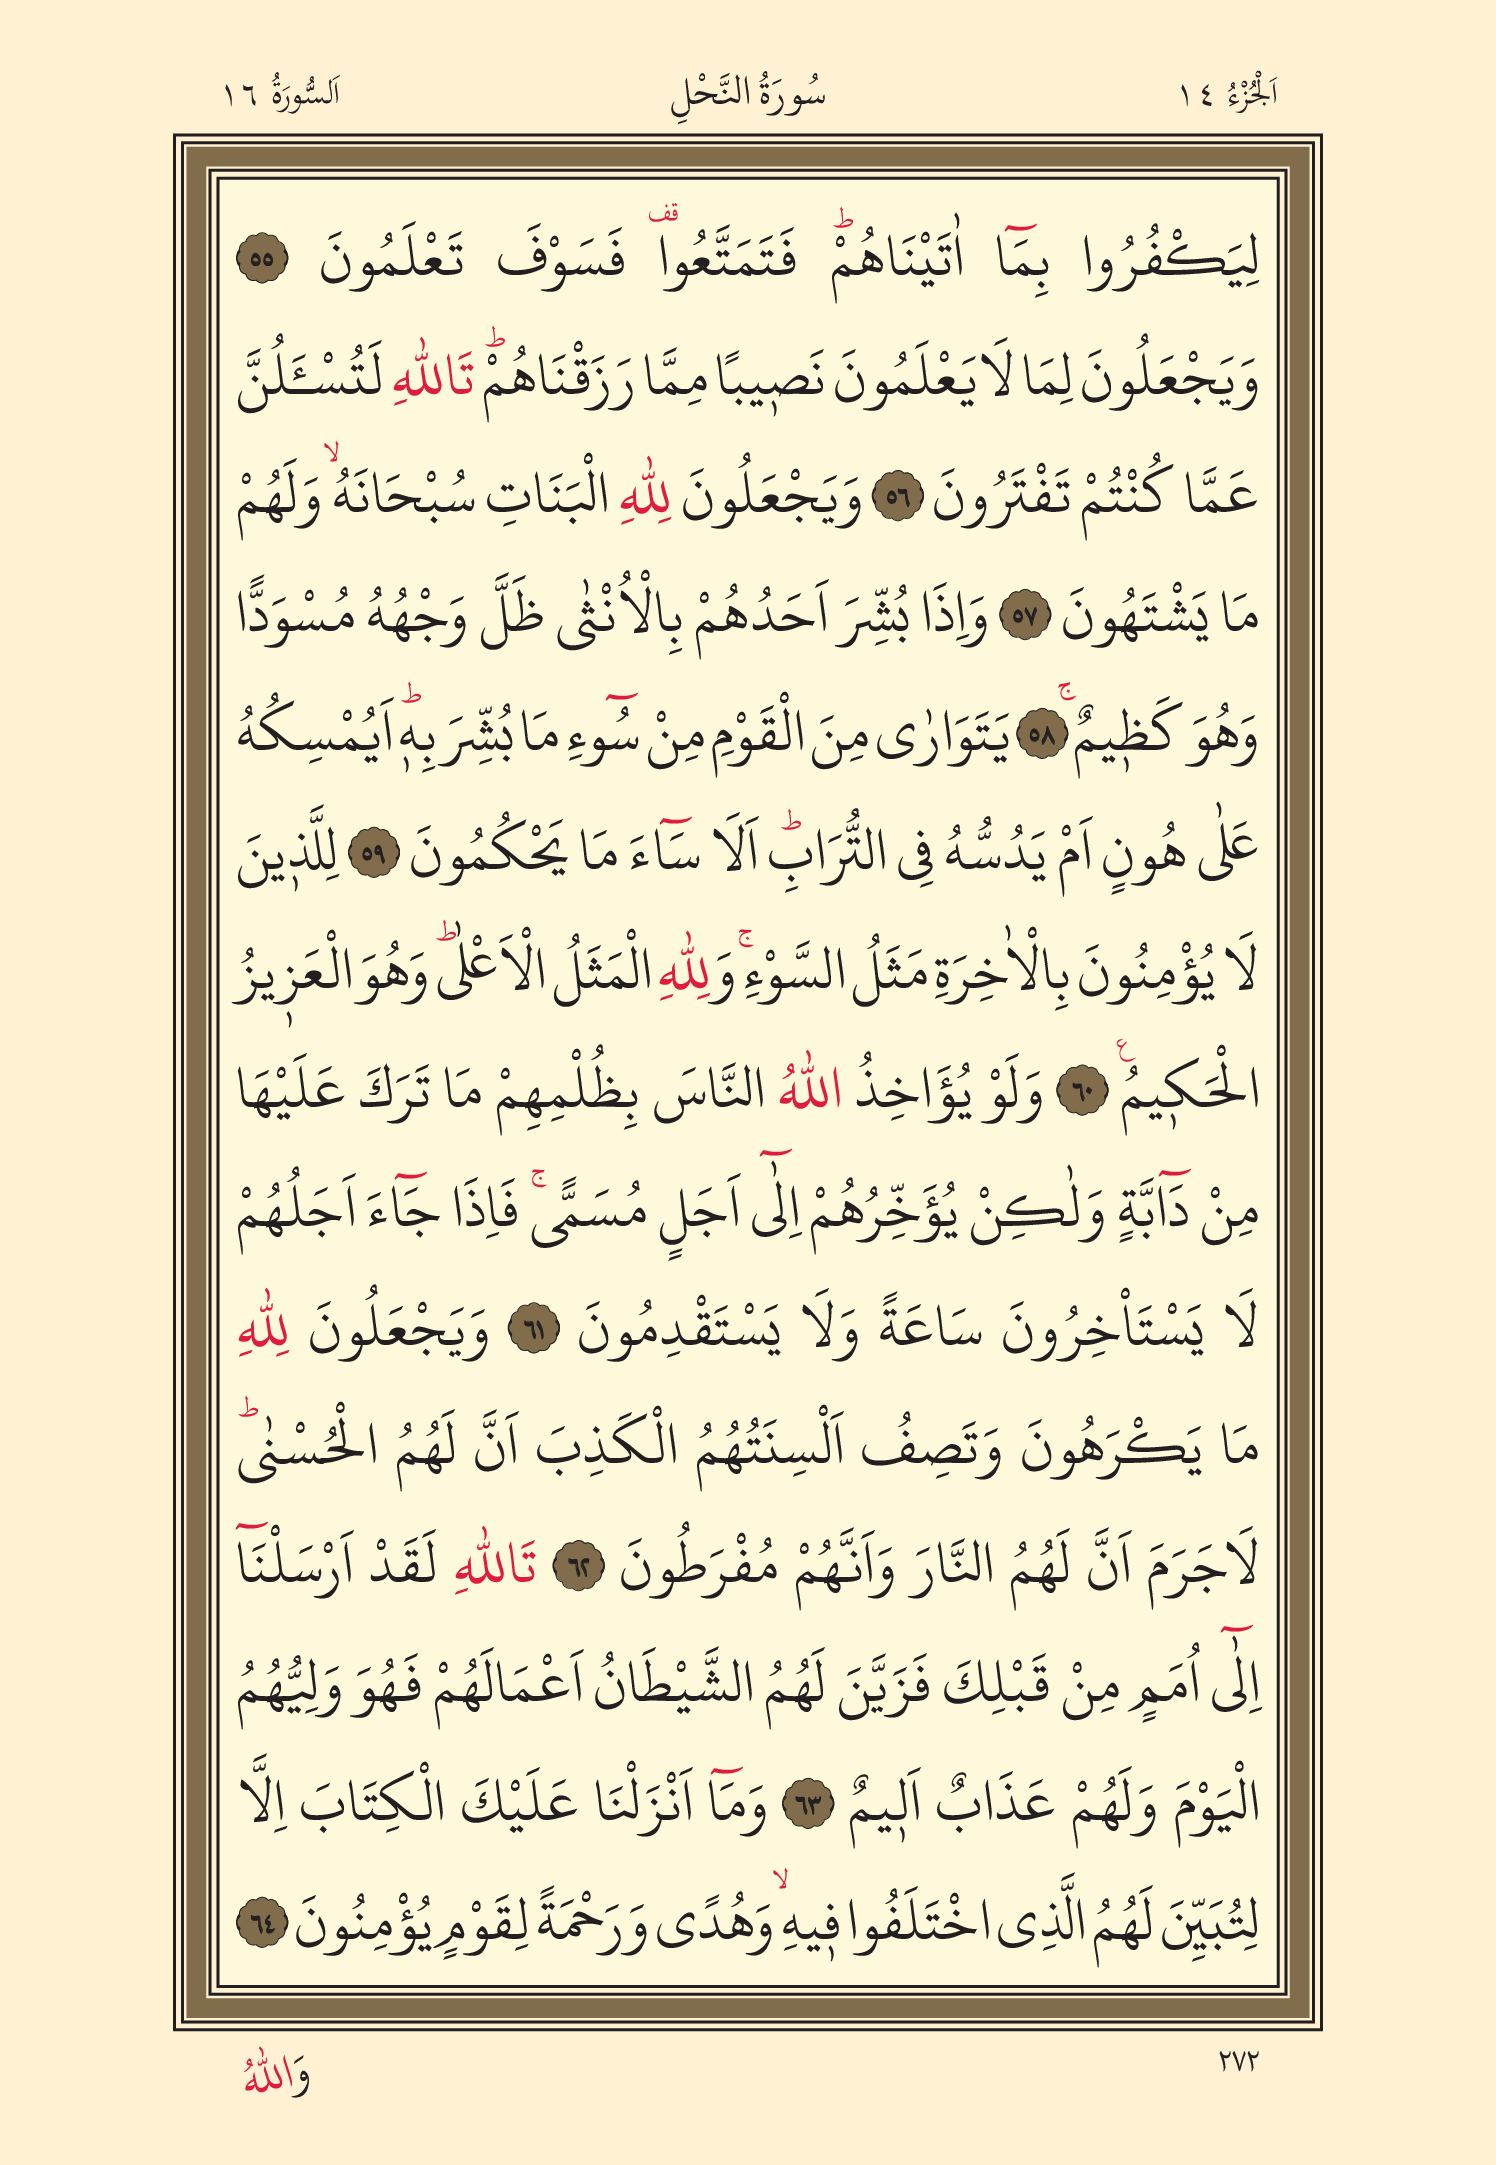 اَلْجُزْءُ ١٤ سُورَةُ النَّحْلِ اَلسُّورَةُ ١٦
لِيَكْفُرُوا بِمَٓا اٰتَيْنَاهُمْۜ فَتَمَتَّعُوا۠ فَسَوْفَ تَعْلَمُونَ ٥٥
وَيَجْعَلُونَ لِمَا لَا يَعْلَمُونَ نَص۪يبًا مِمَّا رَزَقْنَاهُمْۜ تَاللّٰهِ لَتُسْـَٔلُنَّ
عَمَّا كُنْتُمْ تَفْتَرُونَ ٥٦ وَيَجْعَلُونَ لِلّٰهِ الْبَنَاتِ سُبْحَانَهُۙ وَلَهُمْ
مَا يَشْتَهُونَ ٥٧ وَاِذَا بُشِّرَ اَحَدُهُمْ بِالْاُنْثٰى ظَلَّ وَجْهُهُ مُسْوَدًّا
وَهُوَ كَظ۪يمٌۚ ٥٨ يَتَوَارٰى مِنَ الْقَوْمِ مِنْ سُٓوءِ مَا بُشِّرَ بِه۪ۜ اَيُمْسِكُهُ
عَلٰى هُونٍ اَمْ يَدُسُّهُ فِى التُّرَابِۜ اَلَا سَٓاءَ مَا يَحْكُمُونَ ٥٩ لِلَّذ۪ينَ
لَا يُؤْمِنُونَ بِالْاٰخِرَةِ مَثَلُ السَّوْءِۚ وَلِلّٰهِ الْمَثَلُ الْاَعْلٰىۜ وَهُوَ الْعَز۪يزُ
الْحَك۪يمُ۟ ٦٠ وَلَوْ يُؤَاخِذُ اللّٰهُ النَّاسَ بِظُلْمِهِمْ مَا تَرَكَ عَلَيْهَا
مِنْ دَٓابَّةٍ وَلٰكِنْ يُؤَخِّرُهُمْ اِلٰٓى اَجَلٍ مُسَمًّىۚ فَاِذَا جَٓاءَ اَجَلُهُمْ
لَا يَسْتَاْخِرُونَ سَاعَةً وَلَا يَسْتَقْدِمُونَ ٦١ وَيَجْعَلُونَ لِلّٰهِ
مَا يَكْرَهُونَ وَتَصِفُ اَلْسِنَتُهُمُ الْكَذِبَ اَنَّ لَهُمُ الْحُسْنٰىۜ
لَاجَرَمَ اَنَّ لَهُمُ النَّارَ وَاَنَّهُمْ مُفْرَطُونَ ٦٢ تَاللّٰهِ لَقَدْ اَرْسَلْنَٓا
اِلٰٓى اُمَمٍ مِنْ قَبْلِكَ فَزَيَّنَ لَهُمُ الشَّيْطَانُ اَعْمَالَهُمْ فَهُوَ وَلِيُّهُمُ
الْيَوْمَ وَلَهُمْ عَذَابٌ اَل۪يمٌ ٦٣ وَمَٓا اَنْزَلْنَا عَلَيْكَ الْكِتَابَ اِلَّا
لِتُبَيِّنَ لَهُمُ الَّذِى اخْتَلَفُوا ف۪يهِۙ وَهُدًى وَرَحْمَةً لِقَوْمٍ يُؤْمِنُونَ ٦٤
٢٧٢ وَاللّٰهُ